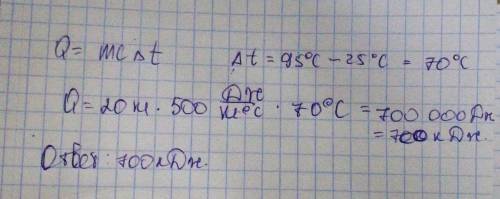 Q = mc Δt    Δt = 95°C − 25°C = 70°C
Q = 20 кг · 500 Дж/кг°C · 70°C = 700 000 Дж
= 700 кДж.
Ответ: 700 кДж.